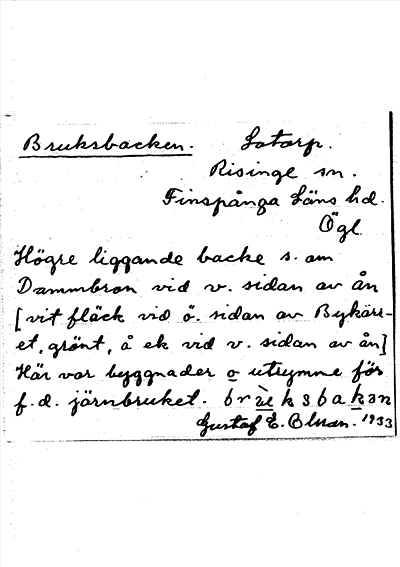 Bruksbacken. Lotorp.
Risinge sn.
Finspånga Läns hd.
Ögl.
Högre liggande backe s. om
Dammbron vid v. sidan av ån
[vit fläck vid ö. sidan av Bykärr-
et, grönt, å ek vid v. sidan av ån]
Här var byggnader o utrymme för
f.d. järnbruket. brùksbakan
Gustaf E. Olsson. 1933